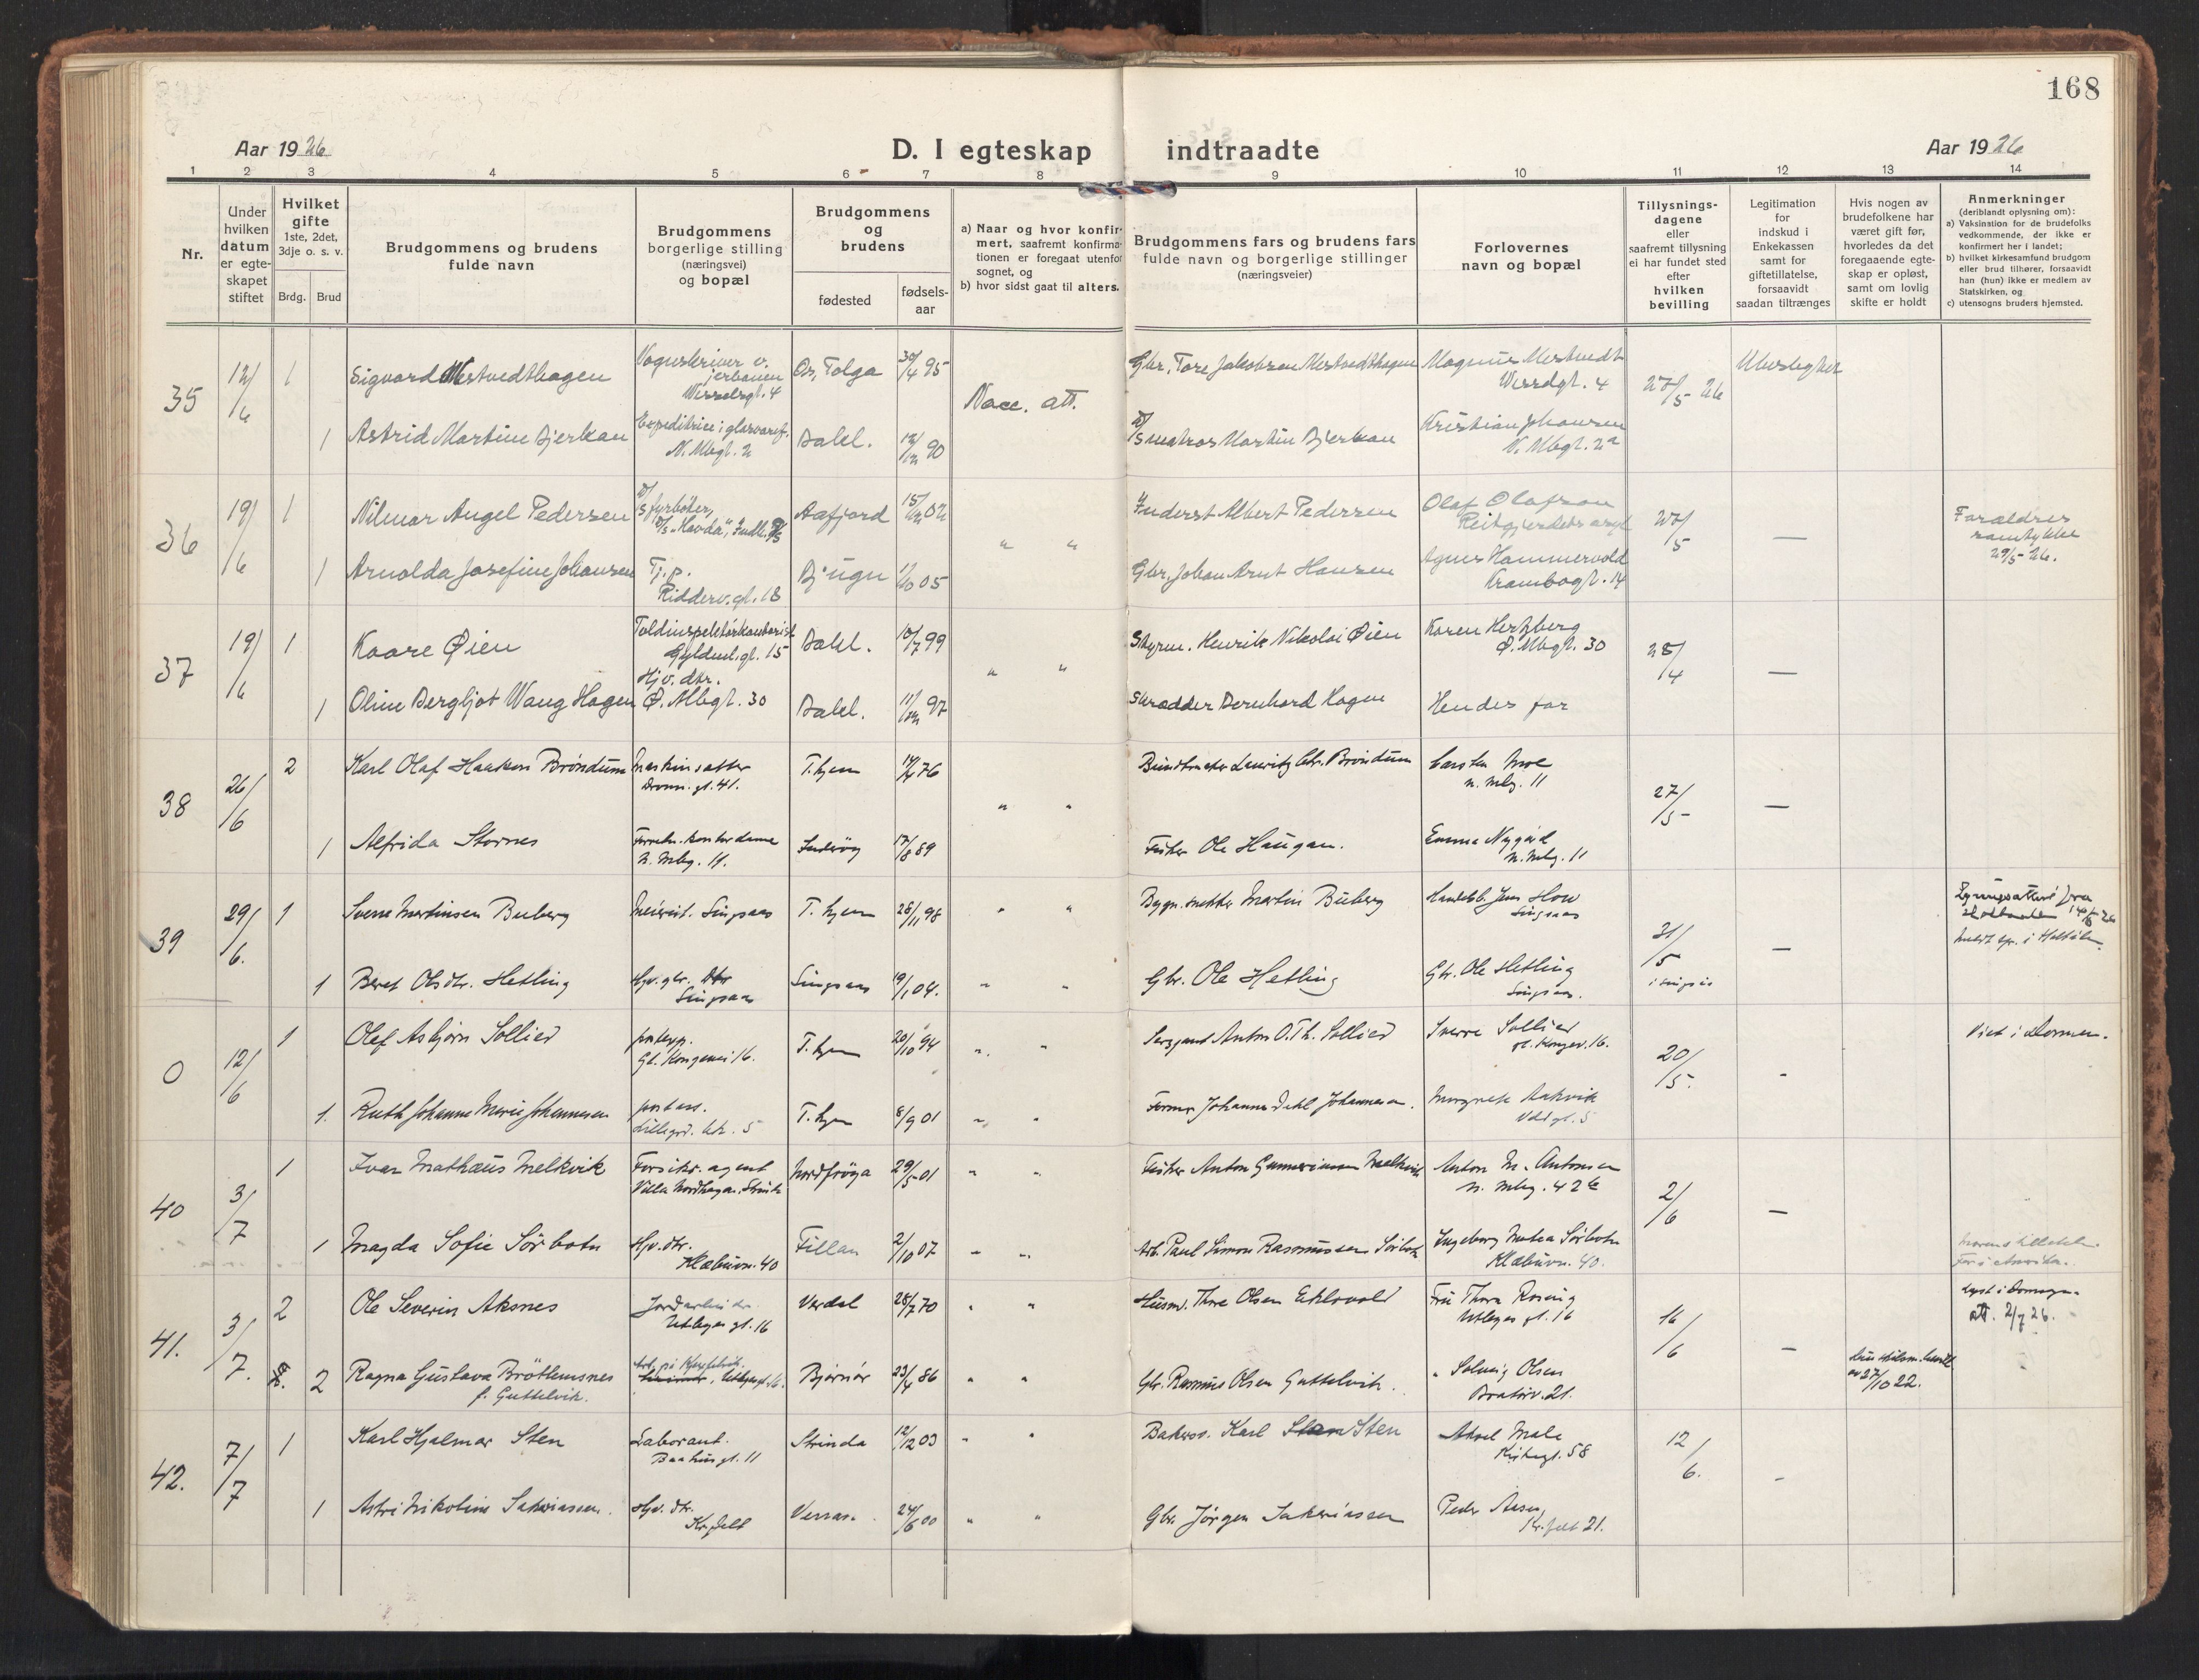 168
Aar 1926
D. I egteskap indtraadte
Aar 1926
1 2 3 4 5 6 7 8 9 10 11 12 13 14
Nr.
Under
hvilken
datum
er egte-
skapet
stiftet
Hvilket
gifte
1ste, 2det,
3dje o. s. v.
Brdg. Brud
Brudgommens og brudens
fulde navn
Brudgommens
borgerlige stilling
(næringsvei)
og bopæl
Brudgommens
og
brudens
fødested
fødsels-
aar
a) Naar og hvor konfir-
mert, saafremt konfirma-
tionen er foregaat utenfor
sognet, og
b) hvor sidst gaat til alters.
Brudgommens fars og brudens fars
fulde navn og borgerlige stillinger
(næringsveier)
Forlovernes
navn og bopæl
Tillysnings-
dagene
eller
saafremt tillysning
ei har fundet sted
efter
hvilken
bevilling
Legitimation
for
indskud i
Enkekassen
samt for
giftetillatelse,
forsaavidt
saadan tiltrænges
Hvis nogen av
brudefolkene har
været gift før,
hvorledes da det
foregaaende egte-
skap er opløst,
samt om lovlig
skifte er holdt
Anmerkninger
(deriblandt oplysning om):
a) Vaksination for de brudefolks
vedkommende, der ikke er
konfirmert her i landet;
b) hvilket kirkesamfund brudgom
eller brud tilhører, forsaavidt
han (hun) ikke er medlem av
Statskirken, og
c) utensogns bruders hjemsted.
35 12/6 1 Sigvard Mestvedthagen Vognskriver v. jernbanen Wesselsgt. 4 Os, Tolga 30/4 95 Vacc. att. Gbr. Tore Jakobsen Mestvedthagen Magnus Mestvedt Wesselgt. 4 27/5 26
1 Astrid Martine Bjerkan Expeditrice i glasvaref. N. Mbgt. 2 Bakl. 12/12 90 D/S matros Martin Bjerkan Kristian Johansen N. Mbgt. 2a
36 19/6 1 Hilmar Angel Pedersen D/S fyrbøter, D/S "Havda", Aafjord 15/12 02 " " Inderst Albert Pedersen Olaf Olafson Reitgjerdets asyl 27/5 — Forældres samtykke 29/5-26.
1 Arnolda Josefine Johansen Tj.p. Ridderv.gt. 18 Bjugn 1/10 05 Gbr. Johan Arnt Hansen Agnes Hammervold Krambogt. 14
37 19/6 1 Kaare Øien Toldinspektørkontorist Gyldenl.gt. 15 Bakl. 10/7 99 " " Styrm. Henrik Nikolai Øien Karen Hertzberg Ø. Mbgt. 30 28/4 —
1 Oline Bergljot Wang Hagen Hjv. dtr. Ø. Mbgt. 30 Bakl. 11/12 97 Skrædder Bernhard Hagen Hendes far
38 26/6 2 Karl Olaf Haakon Bröndum Maskinsætter Dronn. gt. 41. T.hjem 76 " " Lauritz Chr. Bröndum Carsten Moe N. Mbg. 11 27/5 —
1 Alfrida Stornes Forretn. kontordame N. Mbg. 11. Inderøy 17/8 89 Fisker Ole Haugan. Emma Nygård N. Mbg. 11
39 29/6. 1 Sverre Martinsen Buberg Meierist. Singsaas T. hjem 28/1 98 " " Bygn.snekker Martin Buberg Jens How Singsaas 31/5 i Singsås — Lysningsattest fra
1 Beret Olsdtr. Hetling Hjv. gbr. dtr Singsaas Singsaas 19/1 04. " " Gbr. Ole Hetling Gbr. Ole Hetling Singsaas.
0 12/6 1 Olaf Asbjørn Sollied postexp. Gl. Kongevei 16. T. hjem 20/10 94 " " Sersjant Anton O.Th. Sollied Sverre Sollied gl. Kongev. 16. 20/5. - Viet i Domen.
1. Ruth Johanne Marie Johannesen post ass. Lillegrd. bk. 5 T. hjem 8/9 01 " " Former Johannes Dahl Johannesen. Margrete Aakvik 5
40 3/7 1 Ivar Mathæus Melkvik Forsikr. agent Villa Nordhagen, Strinda Nordfrøya 29/5 01 " " Fisker Anton Gunneriussen Melkvik Anton M. Antonsen N. Mbg. 42 b 2/6 —
1 Magda Sofie Sörbotn Hjv. dtr. Klæbuvn. 40 Fillan 2/10 07 " " Arb. Paul Simon Rasmussen Sörbotn Ingeborg Sörbotn Klæbuvn. 40. Far i Amerika.
41. 3/7. 2 Ole Severin Aksnes Jordarbeider Utleyes gt. 16 Verdal 28/7 70 " " Husm. Thore Olsen Eklovald Fru Thora Rosnig 16 16/6 — Lyst i Domsogn. att. 2/7 26.
2 Ragna Gustava Bröttemsnes f. Guttelvik. Bjørnör 23/4 86 " " Gbr. Rasmus Olsen Guttelvik. " Solveig Olsen Brattørv. 21. 27/10 22.
42. 7/7 1 Karl Hjalmar Sten Laborant. Baahus gt. 11 Strinda 12/12 03 " " Karl Sten Aksel Male Kirkegt. 58 12/6. -
1 Astri Nikoline Sakariassen. Hjv. dtr. Kr.felt Verran. 24/6 00 " " Gbr. Jørgen Sakariassen Peder Aasen, Kr.felt 21.